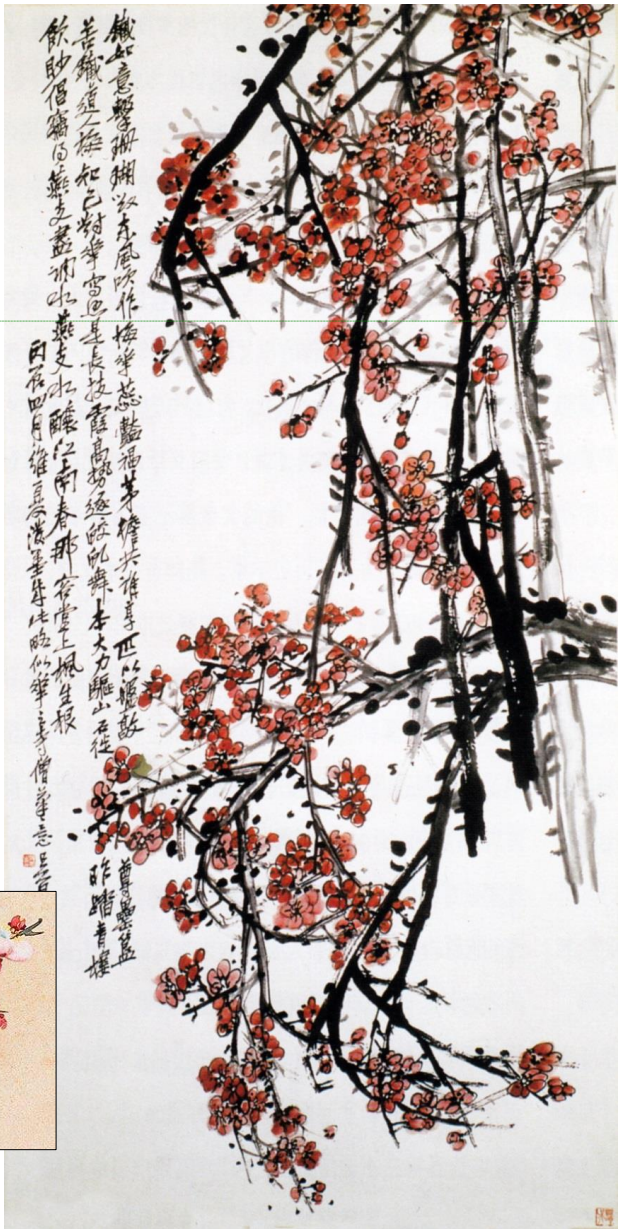 鐵如意擊珊瑚毀東風吹作梅華蕊豔福茅檐共誰享匹以槃敦尊罍簋
苦鐵道人梅知己對華寫照是長技霞高勢逐蛟虬舞本大力驅山石徙昨踏青樓
飲眇倡竊得燕支盡調水燕支水釀江南春那容堂上楓生根
丙辰四月維夏潑墨成此略似華之寺僧筆意